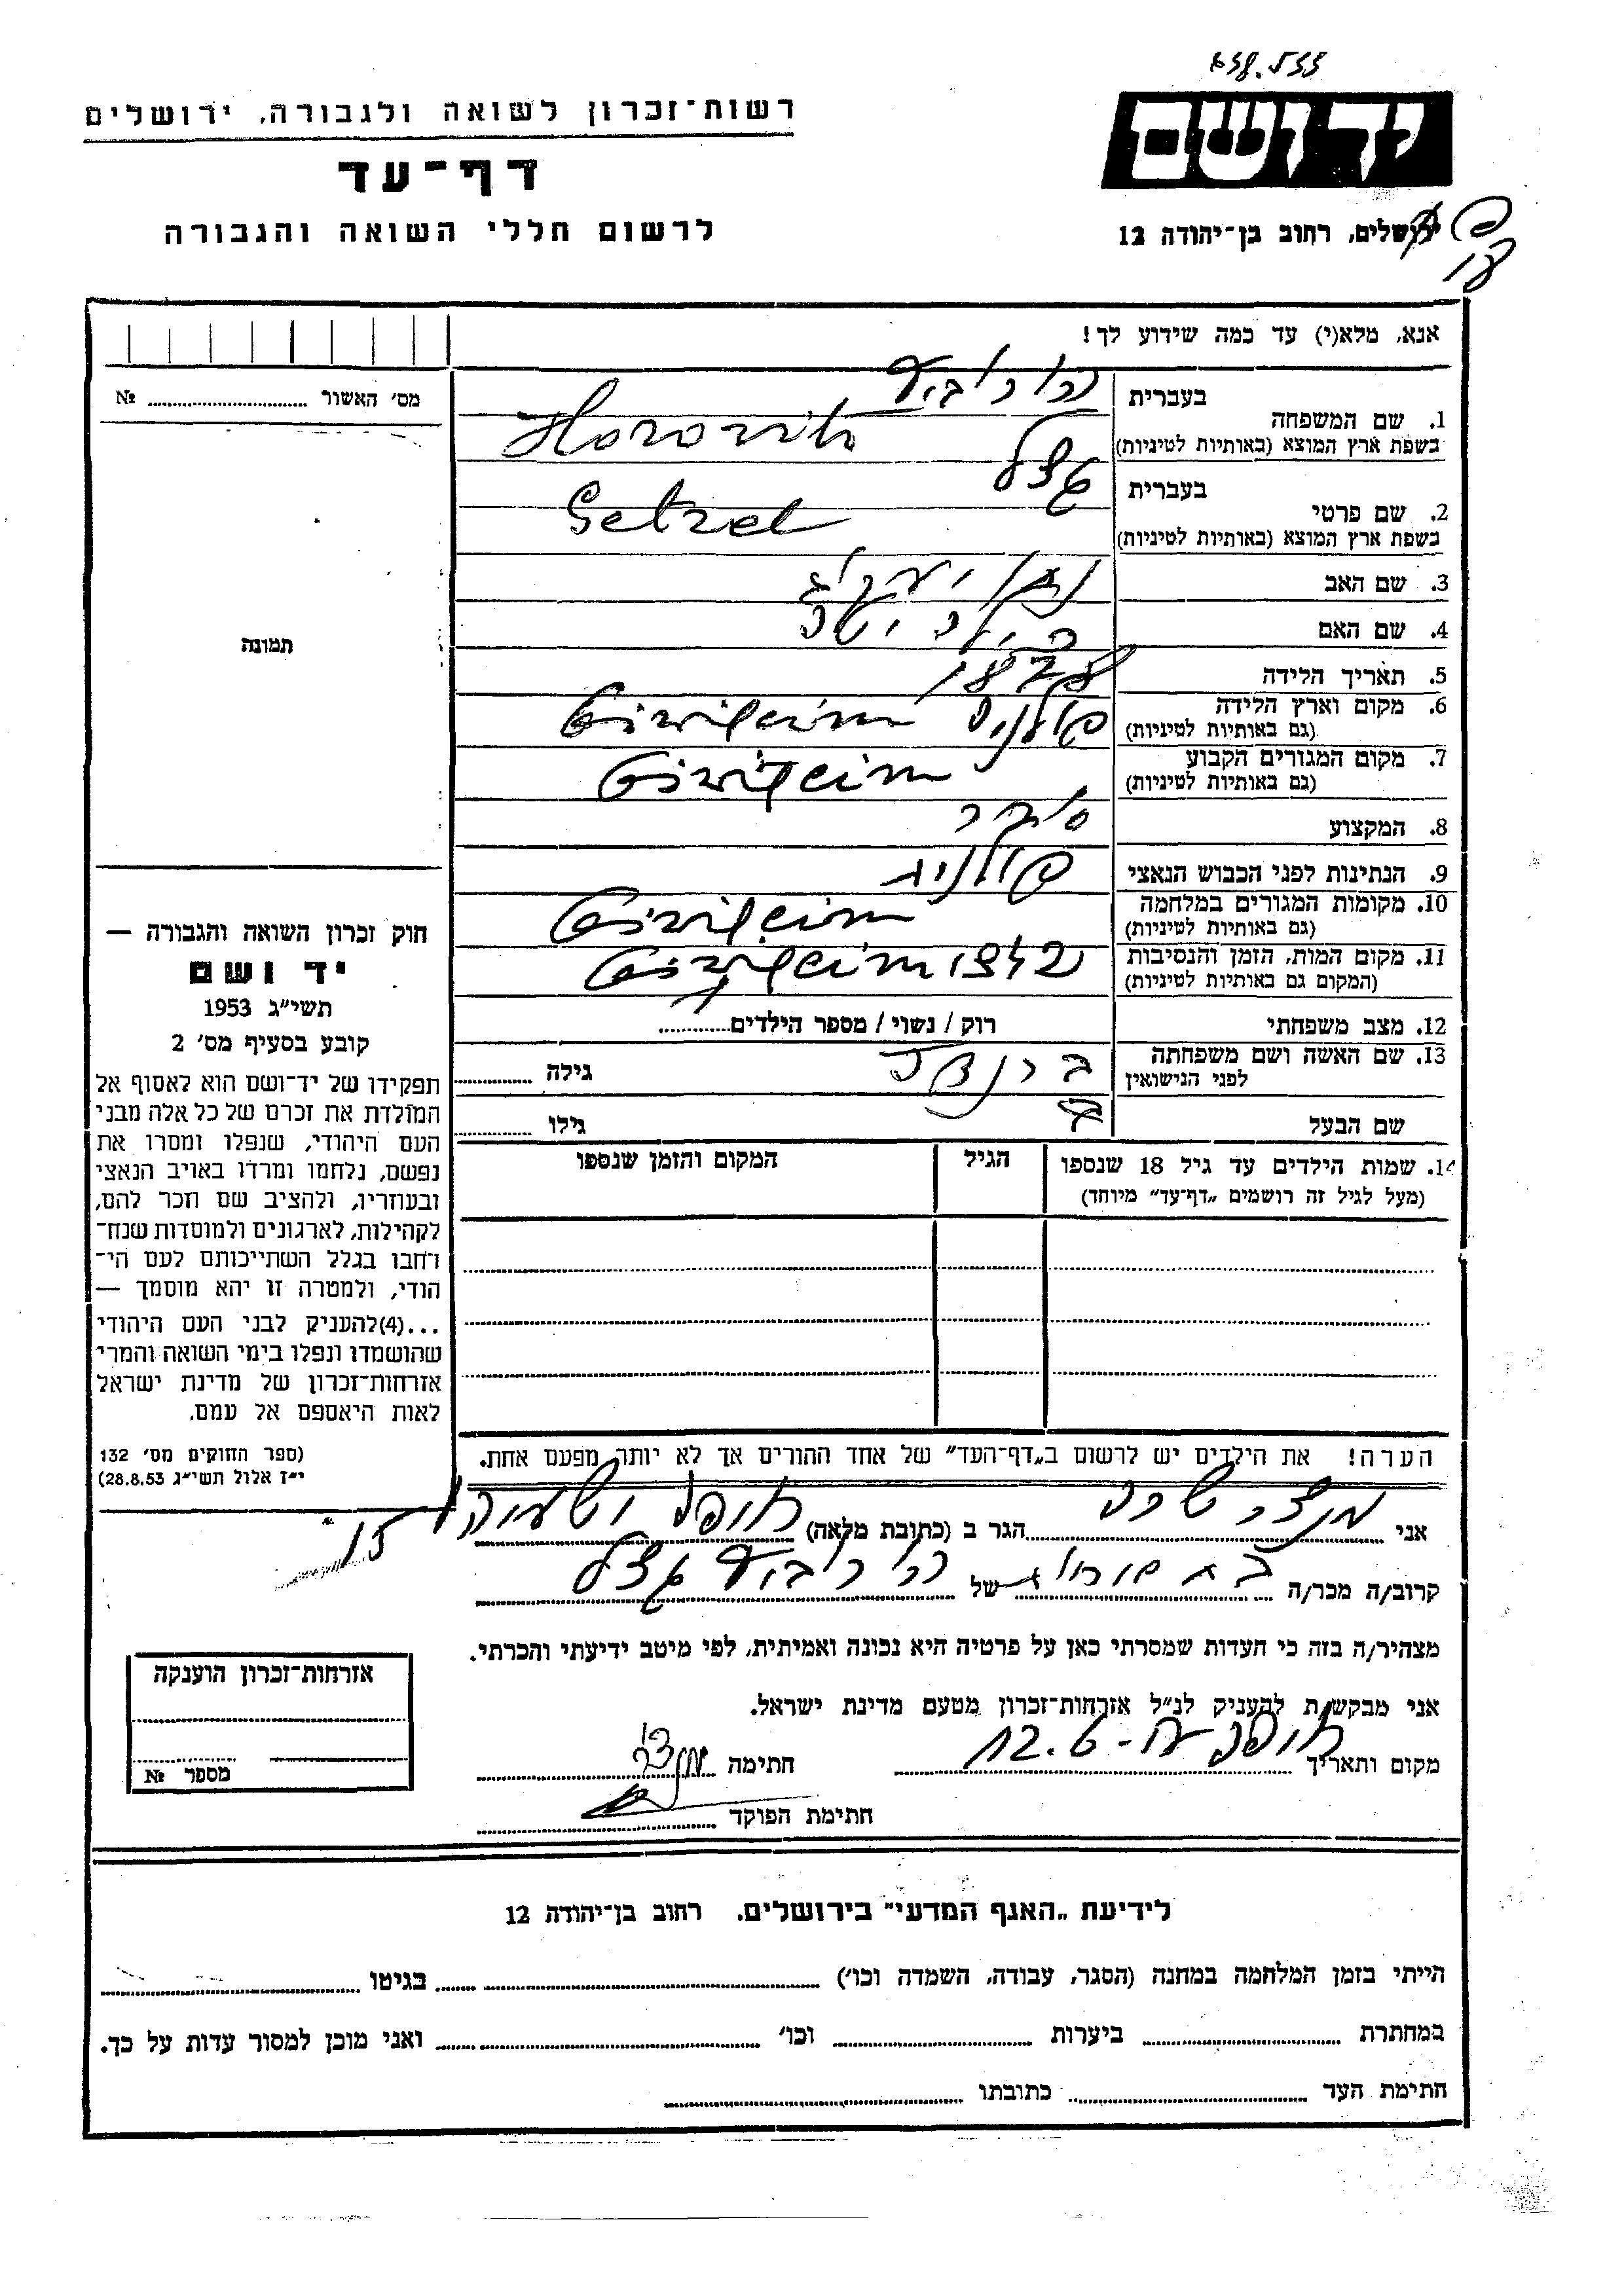 רשות־זכרון לשואה ולגבורה, ירושלים
דף־עד
לרשום חללי השואה והגבורה
ידושם
ירושלים, רחוב בן־יהודה 12
אנא, מלא(י) עד כמה שידוע לך!
1. שם המשפחה
בעברית הורוביץ
בשפת ארץ המוצא (באותיות לטיניות) Horovitz
2. שם פרטי
בעברית געצל
בשפת ארץ המוצא (באותיות לטיניות) Getzel
3. שם האב נתן יעקב
4. שם האם
5. תאריך הלידה 1878
6. מקום וארץ הלידה
(גם באותיות לטיניות) פולניה
7. מקום המגורים הקבוע
(גם באותיות לטיניות)
8. המקצוע סוחר
9. הנתינות לפני הכבוש הנאצי פולנית
10. מקומות המגורים במלחמה
(גם באותיות לטיניות)
11. מקום המות, הזמן והנסיבות
(המקום גם באותיות לטיניות)
12. מצב משפחתי רוק / נשוי / מספר הילדים
13. שם האשה ושם משפחתה
לפני הנישואין גילה
שם הבעל גילו
14. שמות הילדים עד גיל 18 שנספו הגיל המקום והזמן שנספו
(מעל לגיל זה רושמים „דף־עד” מיוחד)
הערה! את הילדים יש לרשום ב„דף־העד” של אחד ההורים אך לא יותר מפעם אחת.
מס' האשור №
תמונה
חוק זכרון השואה והגבורה —
יד ושם
תשי״ג 1953
קובע בסעיף מס' 2
תפקידו של יד־ושם הוא לאסוף אל
המולדת את זכרם של כל אלה מבני
העם היהודי, שנפלו ומסרו את
נפשם, נלחמו ומרדו באויב הנאצי
ובעוזריו, ולהציב שם וזכר להם,
לקהילות, לארגונים ולמוסדות שנח־
רחבו בגלל השתייכותם לעם הי־
הודי, ולמטרה זו יהא מוסמך —
...(4)להעניק לבני העם היהודי
שהושמדו ונפלו בימי השואה והמרי
אזרחות־זכרון של מדינת ישראל
לאות היאספם אל עמם.
(ספר החוקים מס' 132
י״ז אלול תשי״ג 28.8.53)
אני מנצר שרה הגר ב (כתובת מלאה) חופל ישעיהו 15
קרוב/ה מכר/ה של הורוביץ געצל
מצהיר/ה בזה כי העדות שמסרתי כאן על פרטיה היא נכונה ואמיתית, לפי מיטב ידיעתי והכרתי.
אני מבקש/ת להעניק לנ״ל אזרחות־זכרון מטעם מדינת ישראל.
מקום ותאריך 12.6 חתימה
חתימת הפוקד
אזרחות־זכרון הוענקה
מספר №
לידיעת „האגף המדעי” בירושלים, רחוב בן־יהודה 12
הייתי בזמן המלחמה במחנה (הסגר, עבודה, השמדה וכו') בגיטו
במחתרת ביערות וכו' ואני מוכן למסור עדות על כך.
חתימת העד כתובתו